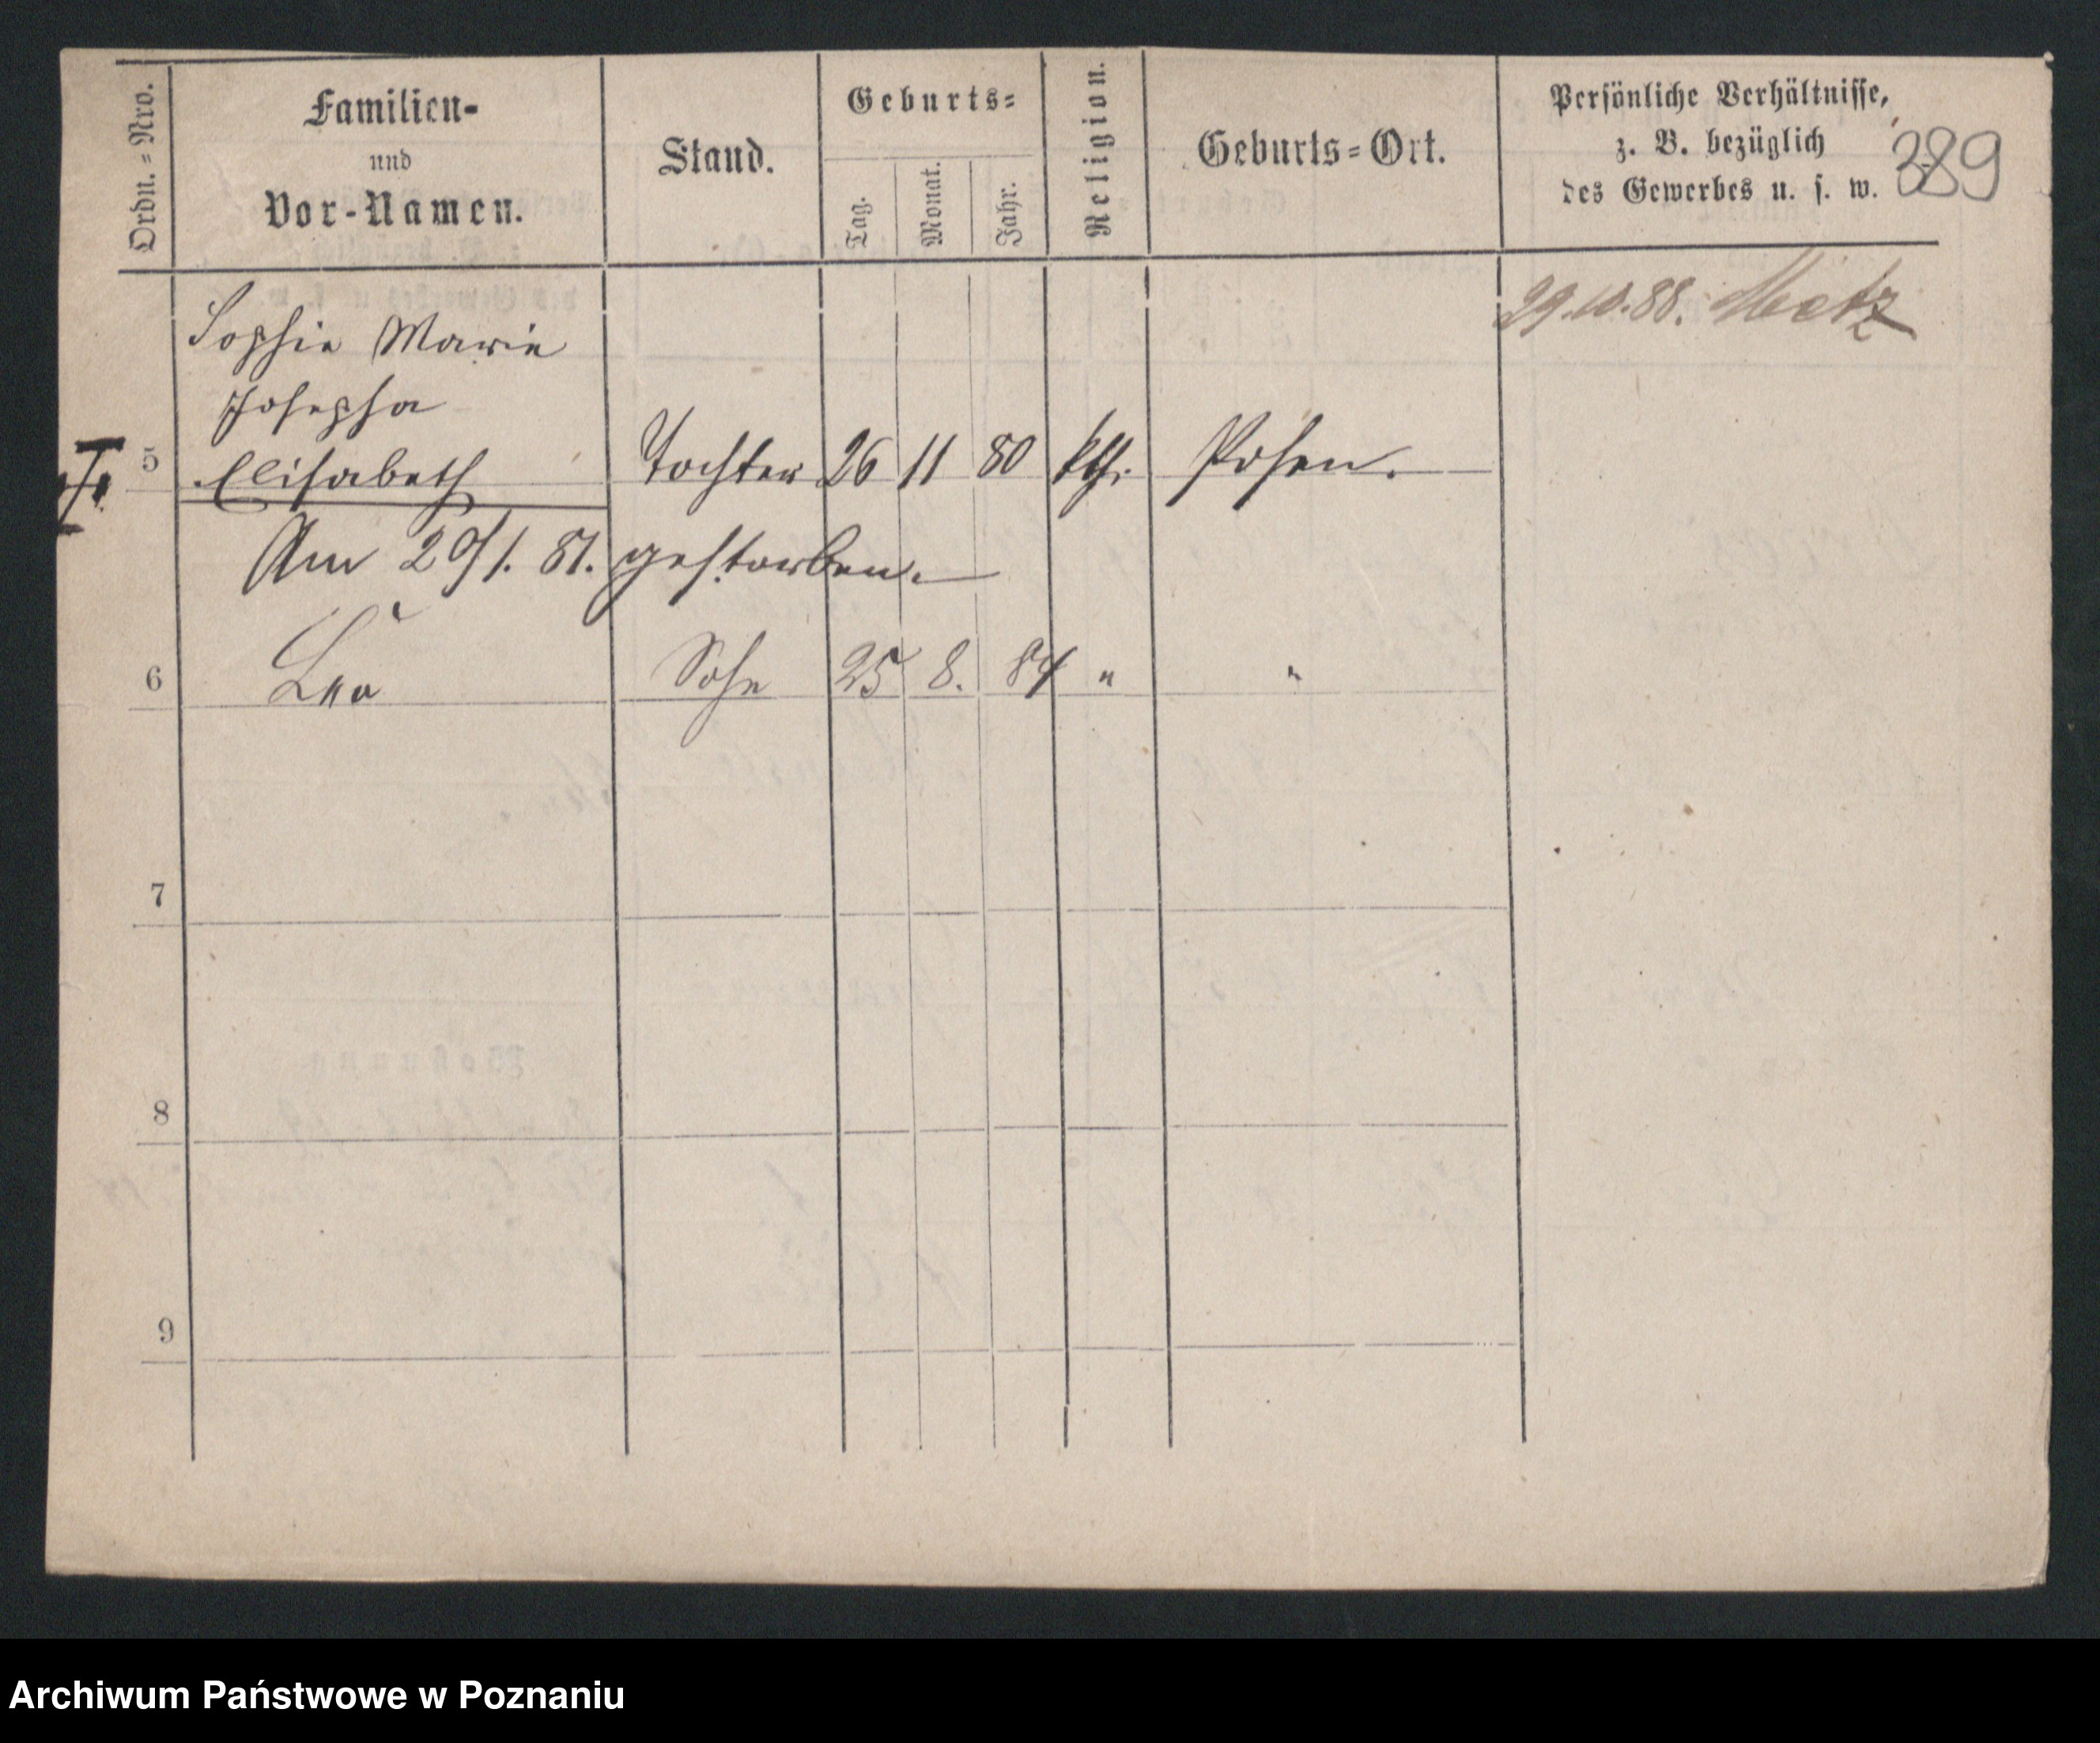 Ordn.=Nro.
Familien-
und
Vor-Namen.
Stand.
Geburts=
Tag.
Monat.
Jahr.
Religion.
Geburts=Ort.
Persönliche Verhältnisse,
z. B. bezüglich
des Gewerbes u. s. w.
389
29.10.88. Metz
Sophie Marie
Josepha
5 Elisabeth Tochter 26 11 80 kth. Posen.
Am 29/1. 81. gestorben.
6 Leo Sohn 25 8. 84 " "
7
8
9
Archiwum Państwowe w Poznaniu